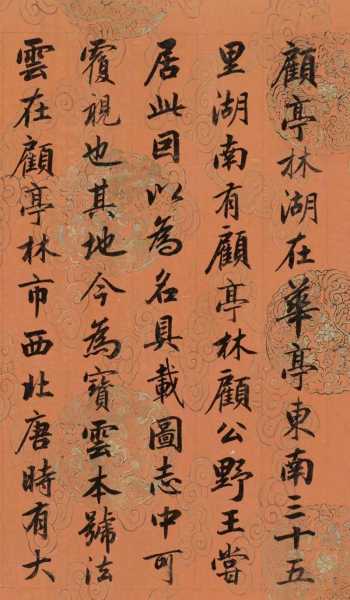 顧亭林湖在華亭東南三十五
里湖南有顧亭林顧公野王嘗
居此因以為名具載圖志中可
覆視也其地今為寶雲本號法
雲在顧亭林市西北唐時有大